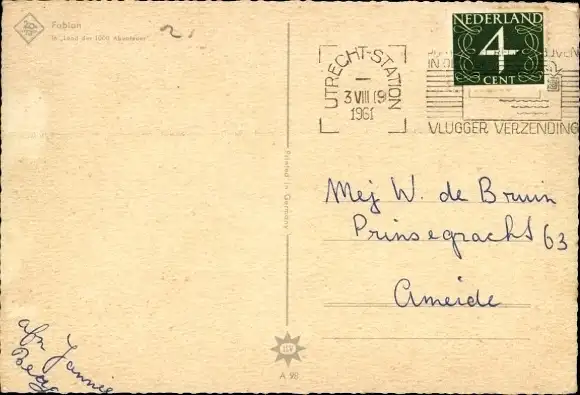 Fabian
in „Land der 1000 Abenteuer"
21
NEDERLAND
4
CENT
UTRECHT-STATION
3 VIII 19
1961
IN
VLUGGER VERZENDING
Printed in Germany
Mej W. de Bruin
Prinsegracht 63
Ameide
afz Jannie
A 98